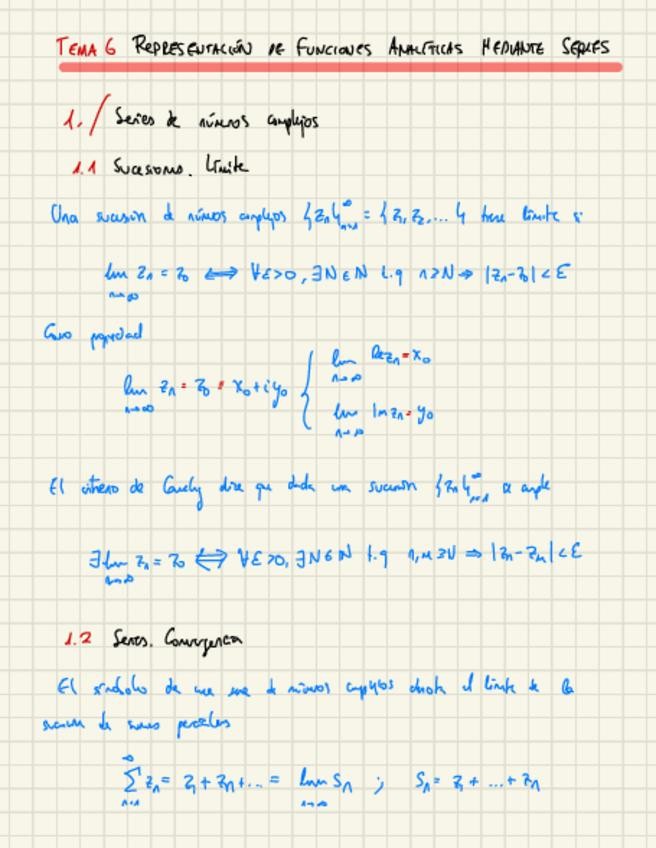 TEMA 6 REPRESENTACIÓN DE FUNCIONES ANALÍTICAS MEDIANTE SERIES
1./ Series de números complejos
1.1 Sucesiones. Límite
Una sucesión de números complejos {zₙ}ₙ₌₁^∞ = {z₁, z₂, ...} tiene límite si
lim_{n→∞} zₙ = z₀ ⟺ ∀ε>0, ∃N∈ℕ t.q n≥N ⇒ |zₙ-z₀| < ε
Como propiedad
lim_{n→∞} zₙ = z₀ = x₀+iy₀ { lim_{n→∞} Re zₙ = x₀
lim_{n→∞} Im zₙ = y₀
El criterio de Cauchy dice que dada una sucesión {zₙ}ₙ₌₁^∞ se cumple
∃ lim_{n→∞} zₙ = z₀ ⟺ ∀ε>0, ∃N∈ℕ t.q n,m≥N ⇒ |zₙ-zₘ| < ε
1.2 Series. Convergencia
El símbolo de una serie de números complejos denota el límite de la
sucesión de sumas parciales
∑_{n=1}^∞ zₙ = z₁ + zₙ + ... = lim_{n→∞} Sₙ ; Sₙ = z₁ + ... + zₙ